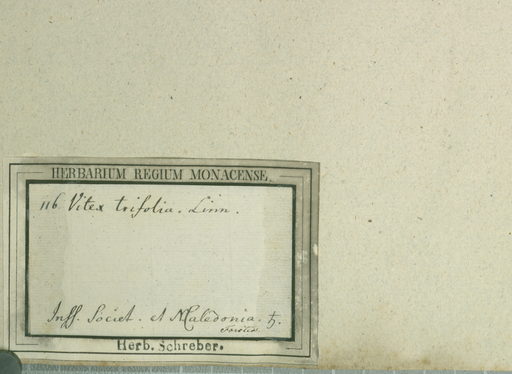 HERBARIUM REGIUM MONACENSE.
116 Vitex trifolia. Linn.
Inss. Societ. et N Caledonia. ♄.
Forster.
Herb. Schreber.